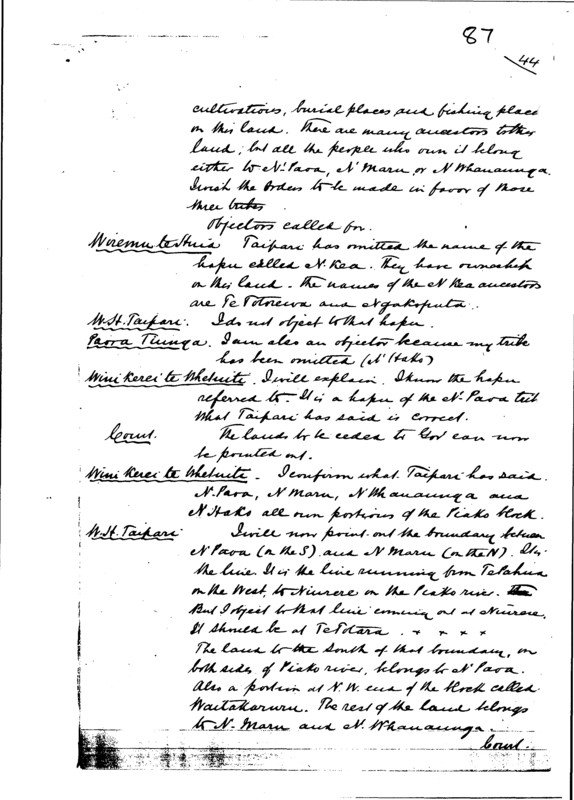 87
44
cultivations, burial places and fishing place
on this land. There are many ancestors to the
land; but all the people who own it belong
either to N. Paoa, N' Maru or N Whanaunga.
I wish the Orders to be made in favor of those
three tribes
Objectors called for.
Wiremu te Huia Taipari has omitted the name of the
hapu called N. Kea. They have ownership
on this land - the names of the N Kea ancestors
are Te Totorewa and Ngakoputa
W. H. Taipari. I do not object to that hapu.
Paora Tiunga. I am also an objector because my tribe
has been omitted (N' Hako)
Wini Kerei te Whetuite. I will explain. I know the hapu
referred to. It is a hapu of the N. Paoa but
what Taipari has said is correct.
Court. The lands to be ceded to Gov can now
be pointed out.
Wini Kerei te Whetuite - I confirm what Taipari has said.
N. Paoa, N Maru, N Whanaunga and
N Hako all own portions of the Piako block.
W. H. Taipari I will now point out the boundary between
N' Paoa (on the S) and N Maru (on the N). It is
the line. It is the line running from Te Pahua
on the West, to Niurere on the Piako river.
But I object to that line coming out at Niurere.
It should be at Te Totara. × × × ×
The land to the south of that boundary, on
both sides of Piako river, belongs to N' Paoa.
Also a portion at N. W. end of the block called
Waitakaruru. The rest of the land belongs
to N. Maru and N. Whanaunga.
Court.